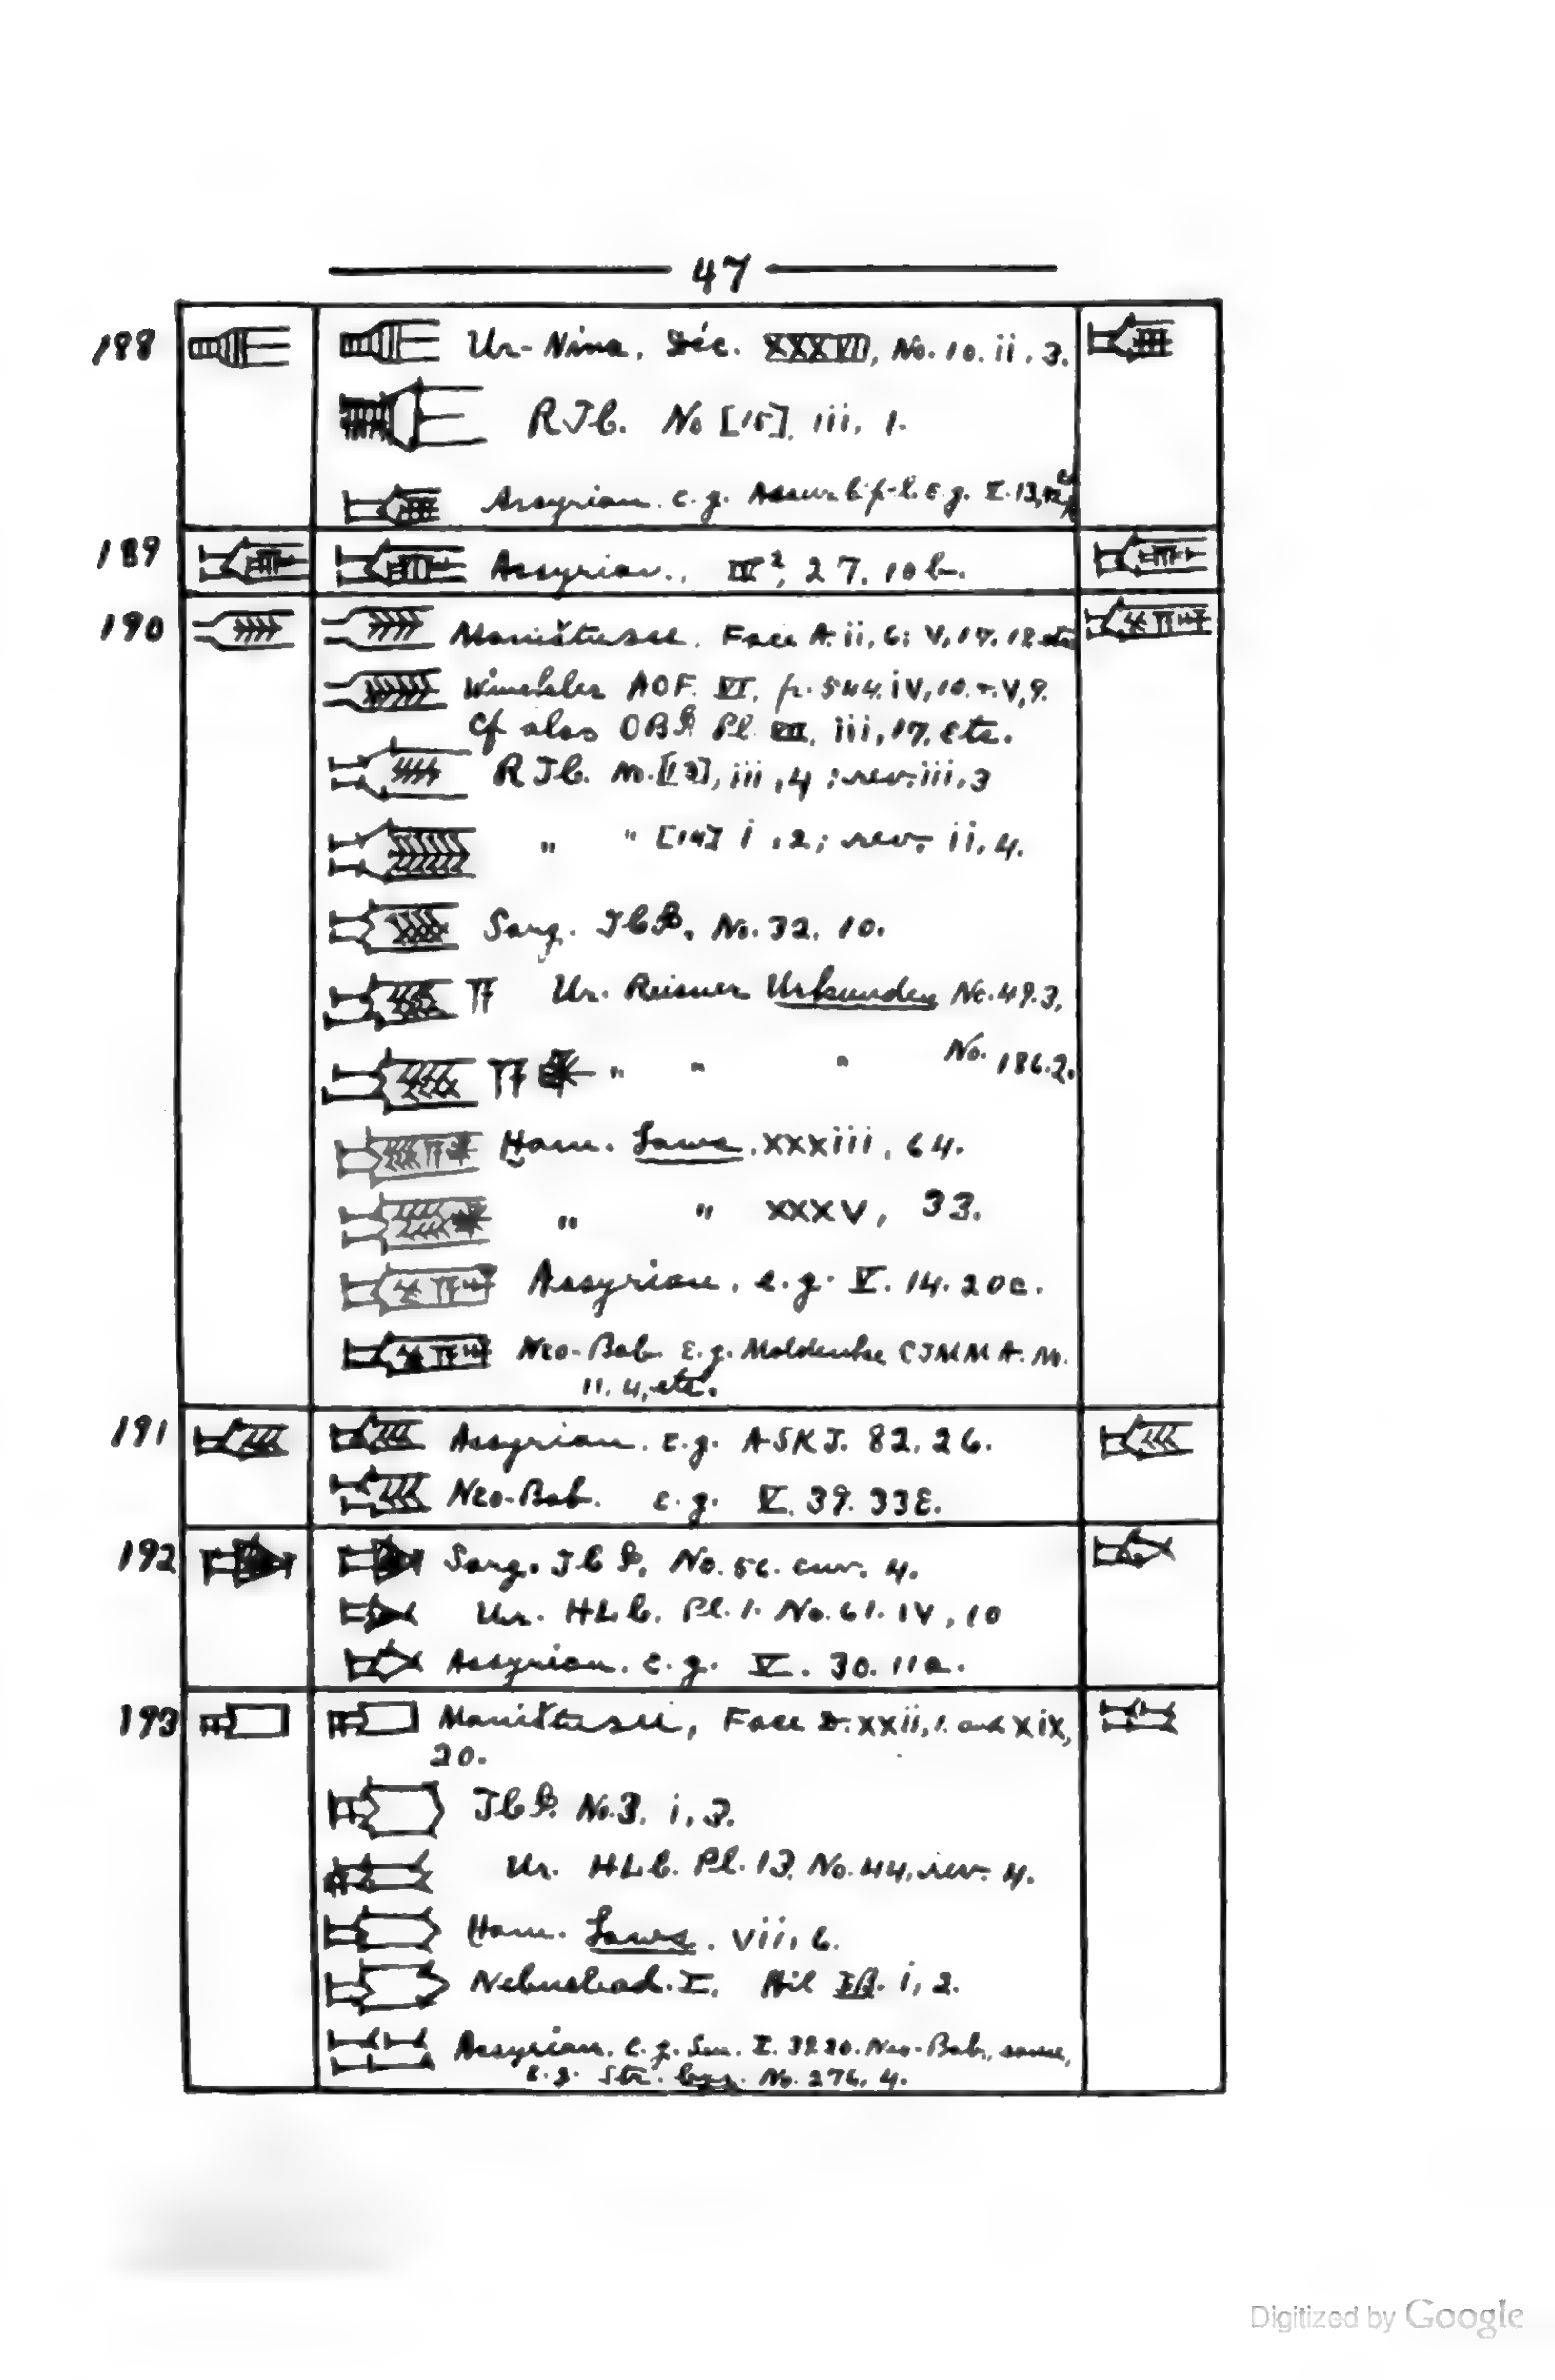 47
188 Ur-Nina, Déc. XXXVII, No. 10. ii, 3.
RTC. No [15], iii, 1.
Assyrian. e.g. 13,
189 Assyrian., IV², 27. 10 b.
190 Maništusu. Face A. ii, 6; V, 17. 18 etc
Winckler AOF. VI. p. 544. iv, 10. + V, 9.
Cf also OBI Pl. iii, 17. etc.
RTC. No. [13], iii, 4; rev. iii, 3
" " [14] i, 2; rev. ii, 4.
Sarg. No. 32. 10.
Ur. Reisner Urkunden No. 49. 3,
" " " No. 186. 2.
Ham. Laws. xxxiii, 64.
" " xxxv, 33.
Assyrian. e.g. V. 14. 20c.
Neo-Bab. e.g. Moldenke CTMMA. No.
11. 4, etc.
191 Assyrian. e.g. ASKT. 82. 26.
Neo-Bab. e.g. V. 39. 33e.
192 Sarg. No. 56. env. 4.
Ur. HLC. Pl. 1. No. 61. iv, 10
Assyrian. e.g. V. 30. 11a.
193 Maništusu, Face D. xxii, 1. and xix,
20.
No. 3. i, 3.
Ur. HLC. Pl. 13. No. 44, rev. 4.
Ham. Laws. vii, 6.
Nebuchad. I. i, 2.
Assyrian. e.g. Sen. I. Neo-Bab. same,
e.g. Str. No. 276. 4.
Digitized by Google